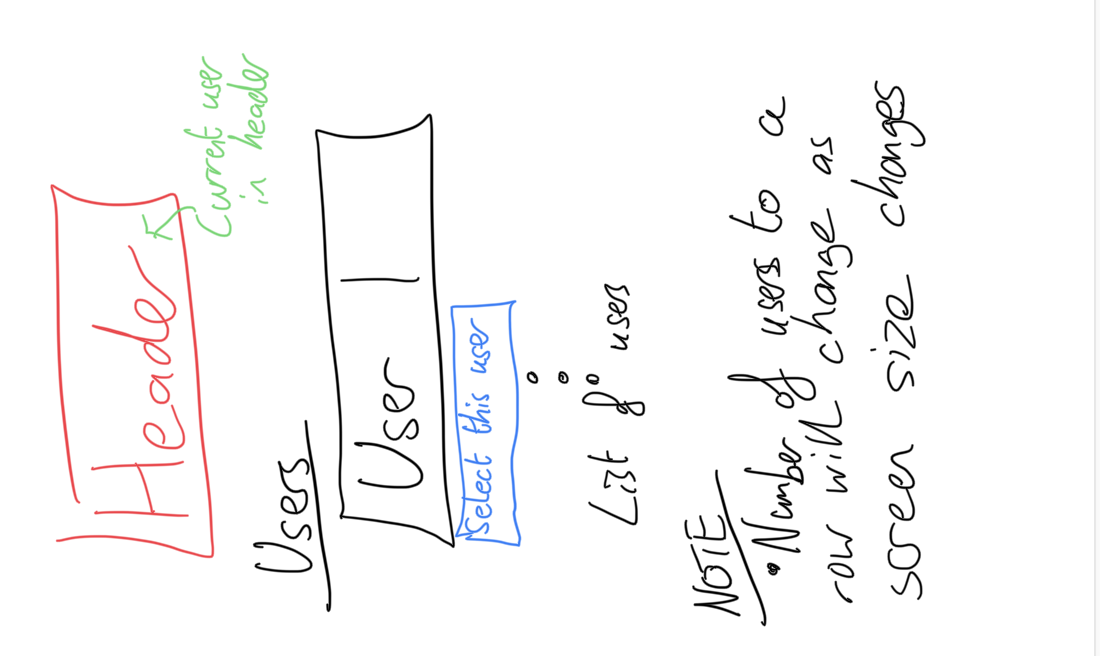 Header
Current user
in header
Users
User 1
Select this user
List of users
NOTE
• Number of users to a
row will change as
screen size changes